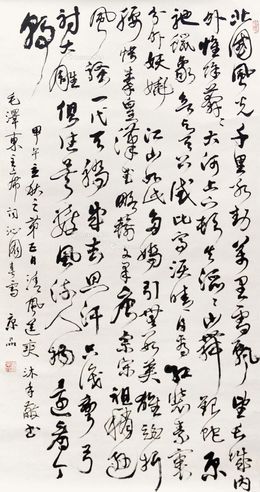 北國風光千里冰封萬里雪飄望長城內
外惟餘莽莽大河上下頓失滔滔山舞銀蛇原
馳蠟象欲與天公試比高須晴日看紅裝素裹
分外妖嬈江山如此多嬌引無數英雄競折
腰惜秦皇漢武略輸文采唐宗宋祖稍遜
風騷一代天驕成吉思汗只識彎弓
射大雕俱往矣數風流人物還看今
朝
甲午立秋之第五日清風送爽沐手敬書
毛澤東主席詞沁園春雪